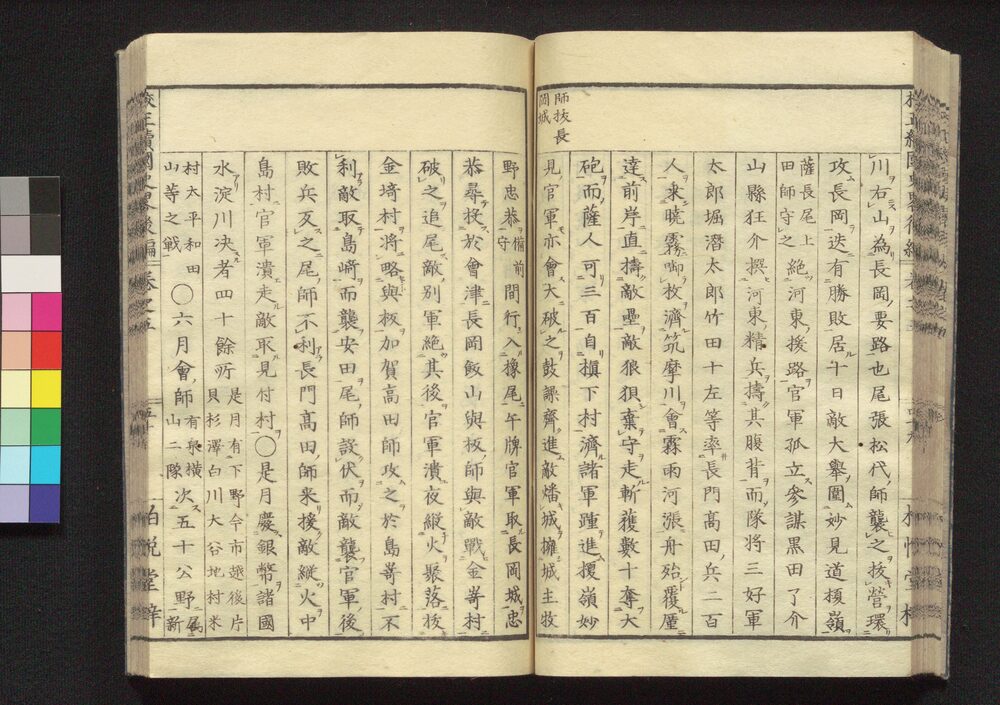 師抜長
岡城
川右山為長岡要路也尾張松代師襲之抜營環
攻長岡迭有勝敗居十日敵大擧圍妙見道榎嶺
薩長尾上
田師守之
絶河東援路官軍孤立參謀黒田了介
山縣狂介撰河東精兵擣其腹背而隊將三好軍
太郎堀潛太郎竹田十左等率長門髙田兵二百
人乘曉霧啣枚濟筑摩川會霧雨河漲舟殆覆厪
達前岸直擣敵壘敵狼狽棄守走斬獲數十奪大
砲而薩人可三百自槇下村濟諸軍踵進榎嶺妙
見官軍亦會大破之鼓譟齊進敵燔城擁城主牧
野忠恭
備前
守
間行入橡尾午牌官軍取長岡城忠
恭尋投於會津長岡飯山與板師與敵戰金嵜村
破之追尾敵別軍絶其後官軍潰夜縱火聚落抜
金埼村將略與板加賀高田師攻之於島嵜村不
利敵取島﨑而襲安田尾師設伏而敵襲官軍後
敗兵反之尾師不利長門髙田師来援敵縱火中
島村官軍潰走敵取見付村〇是月慶銀幣諸國
水淀川决者四十餘所
是月有下野今市越後片
貝杉澤白川大谷地村米
村太平和田
山等之戰
〇六月會師
有泉横
山二隊
次五十公野
属
新
校正續國史畧後編
卷之五
五十
柏悦堂梓